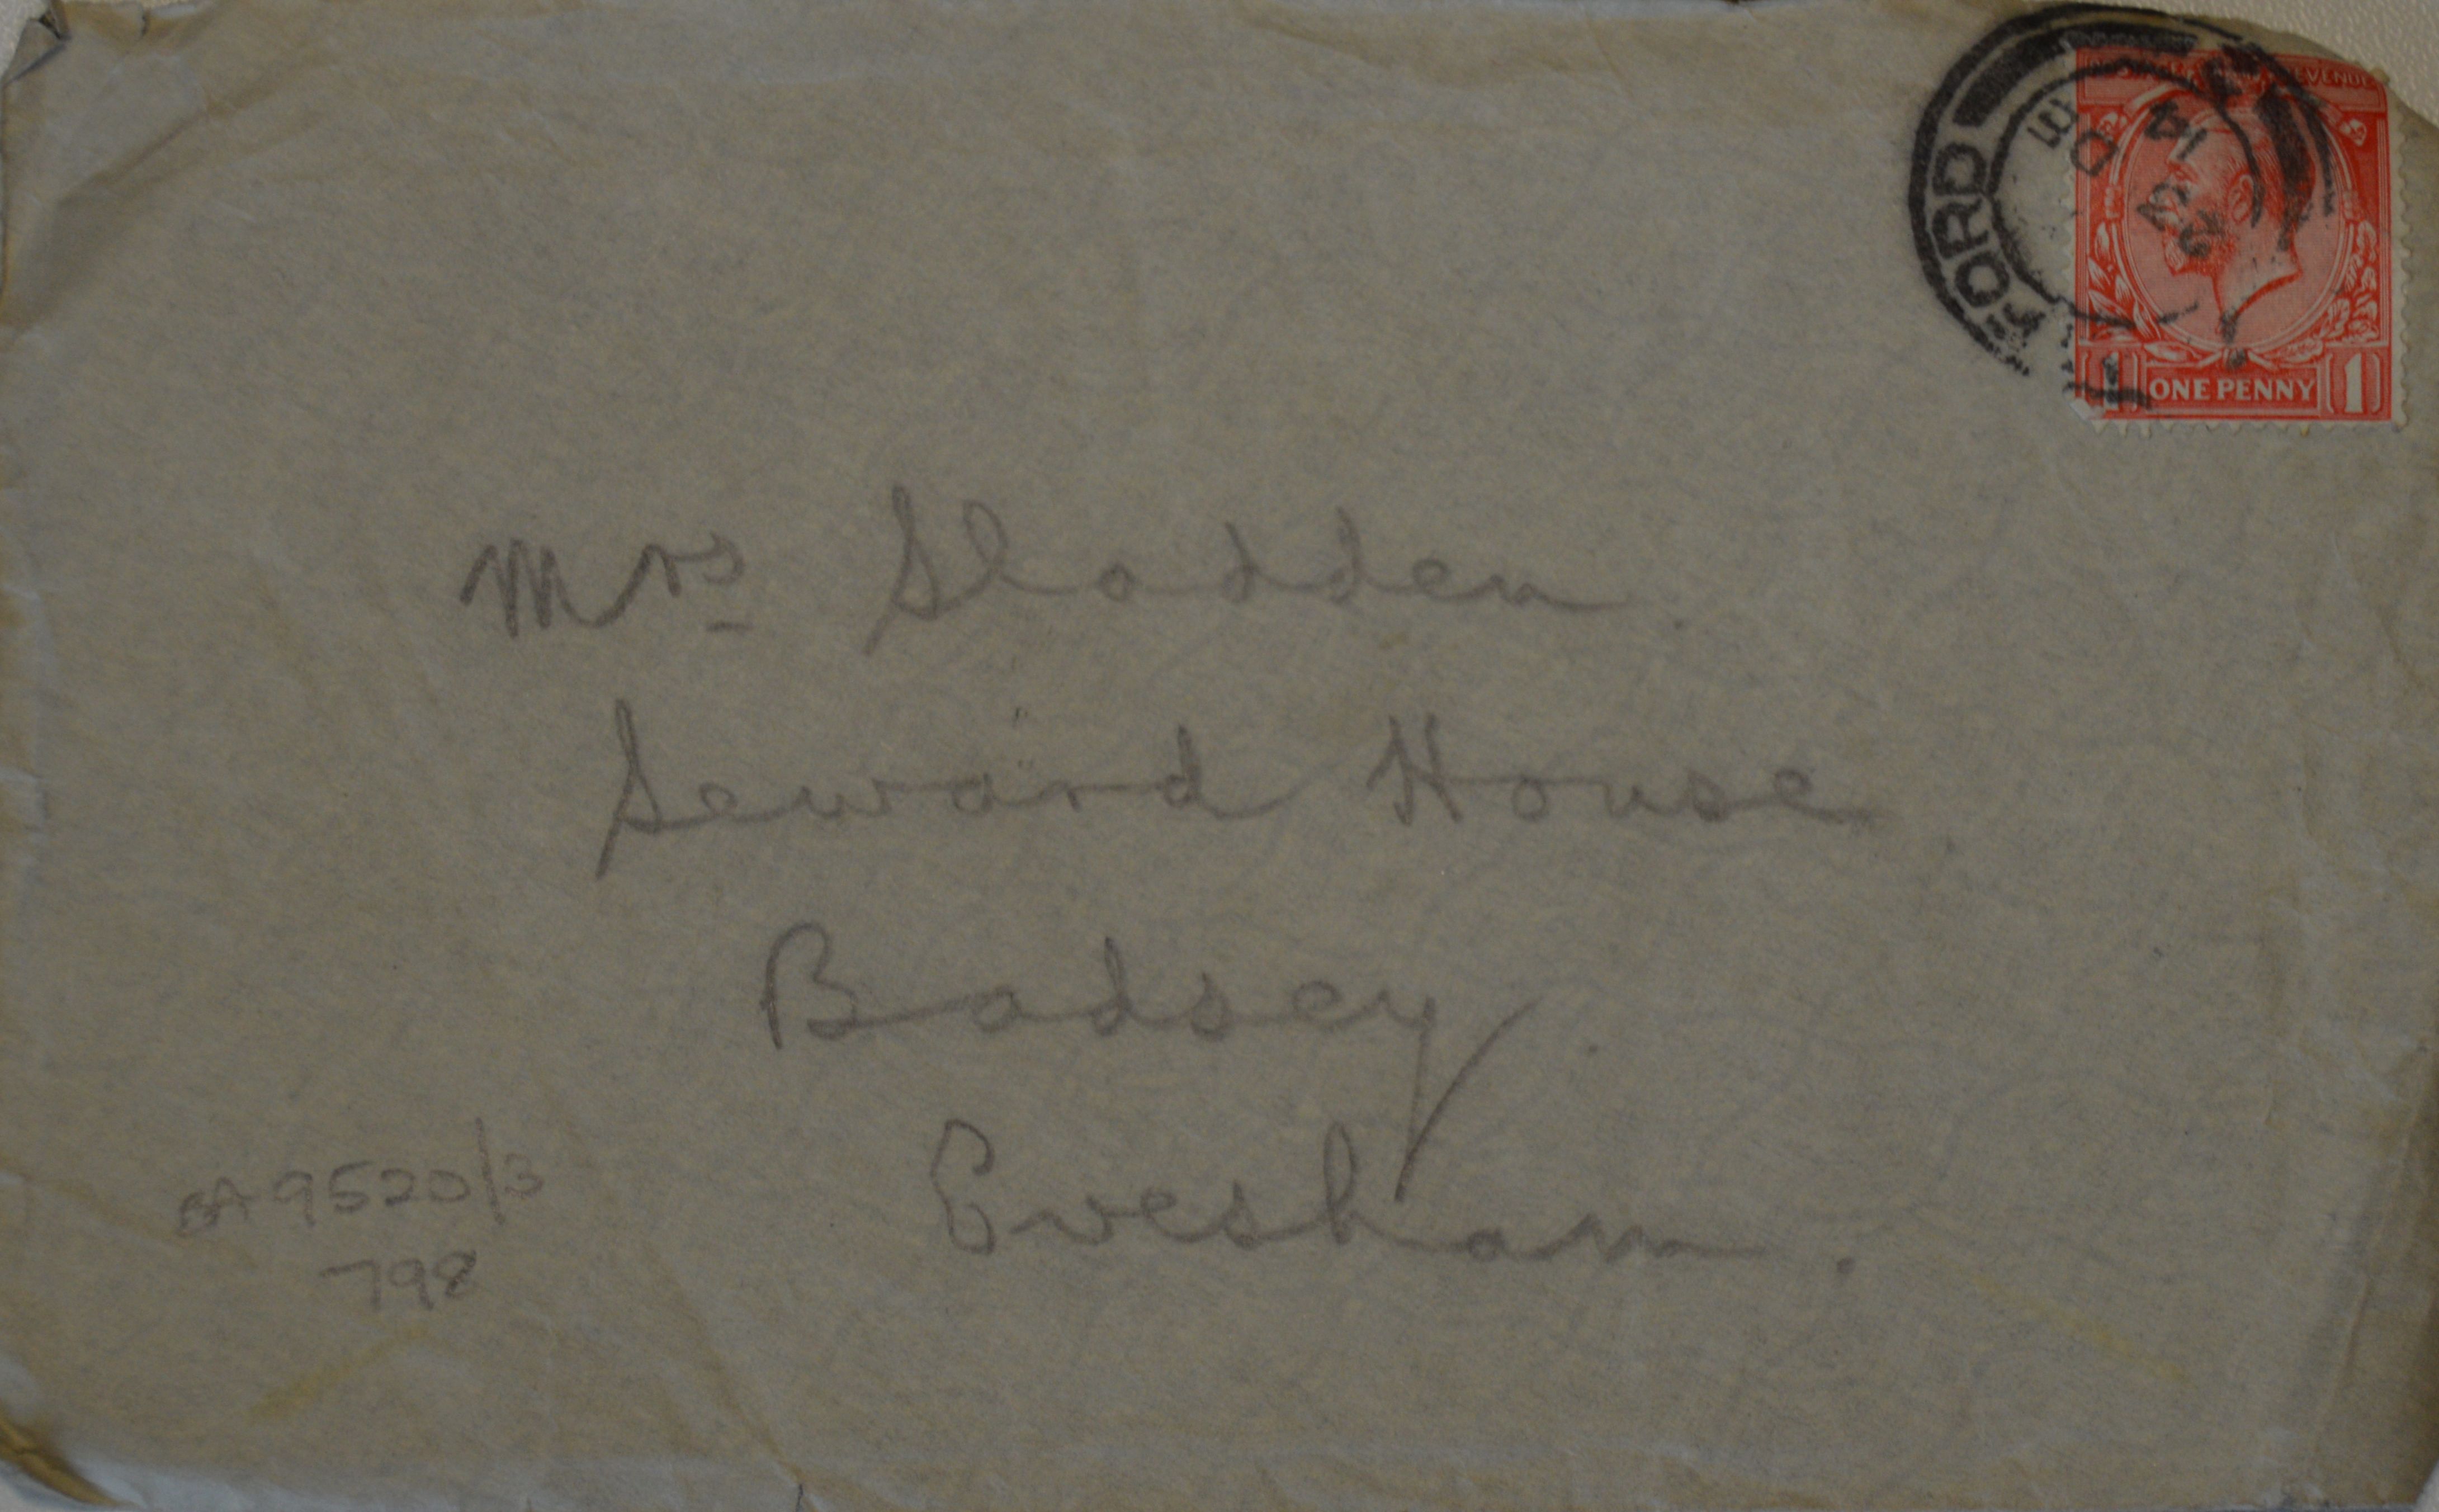 FORD
DE 22
14
REVENUE
ONE PENNY
1
Mrs Sladden
Seward House
Badsey
Evesham.
BA 9520/3
798